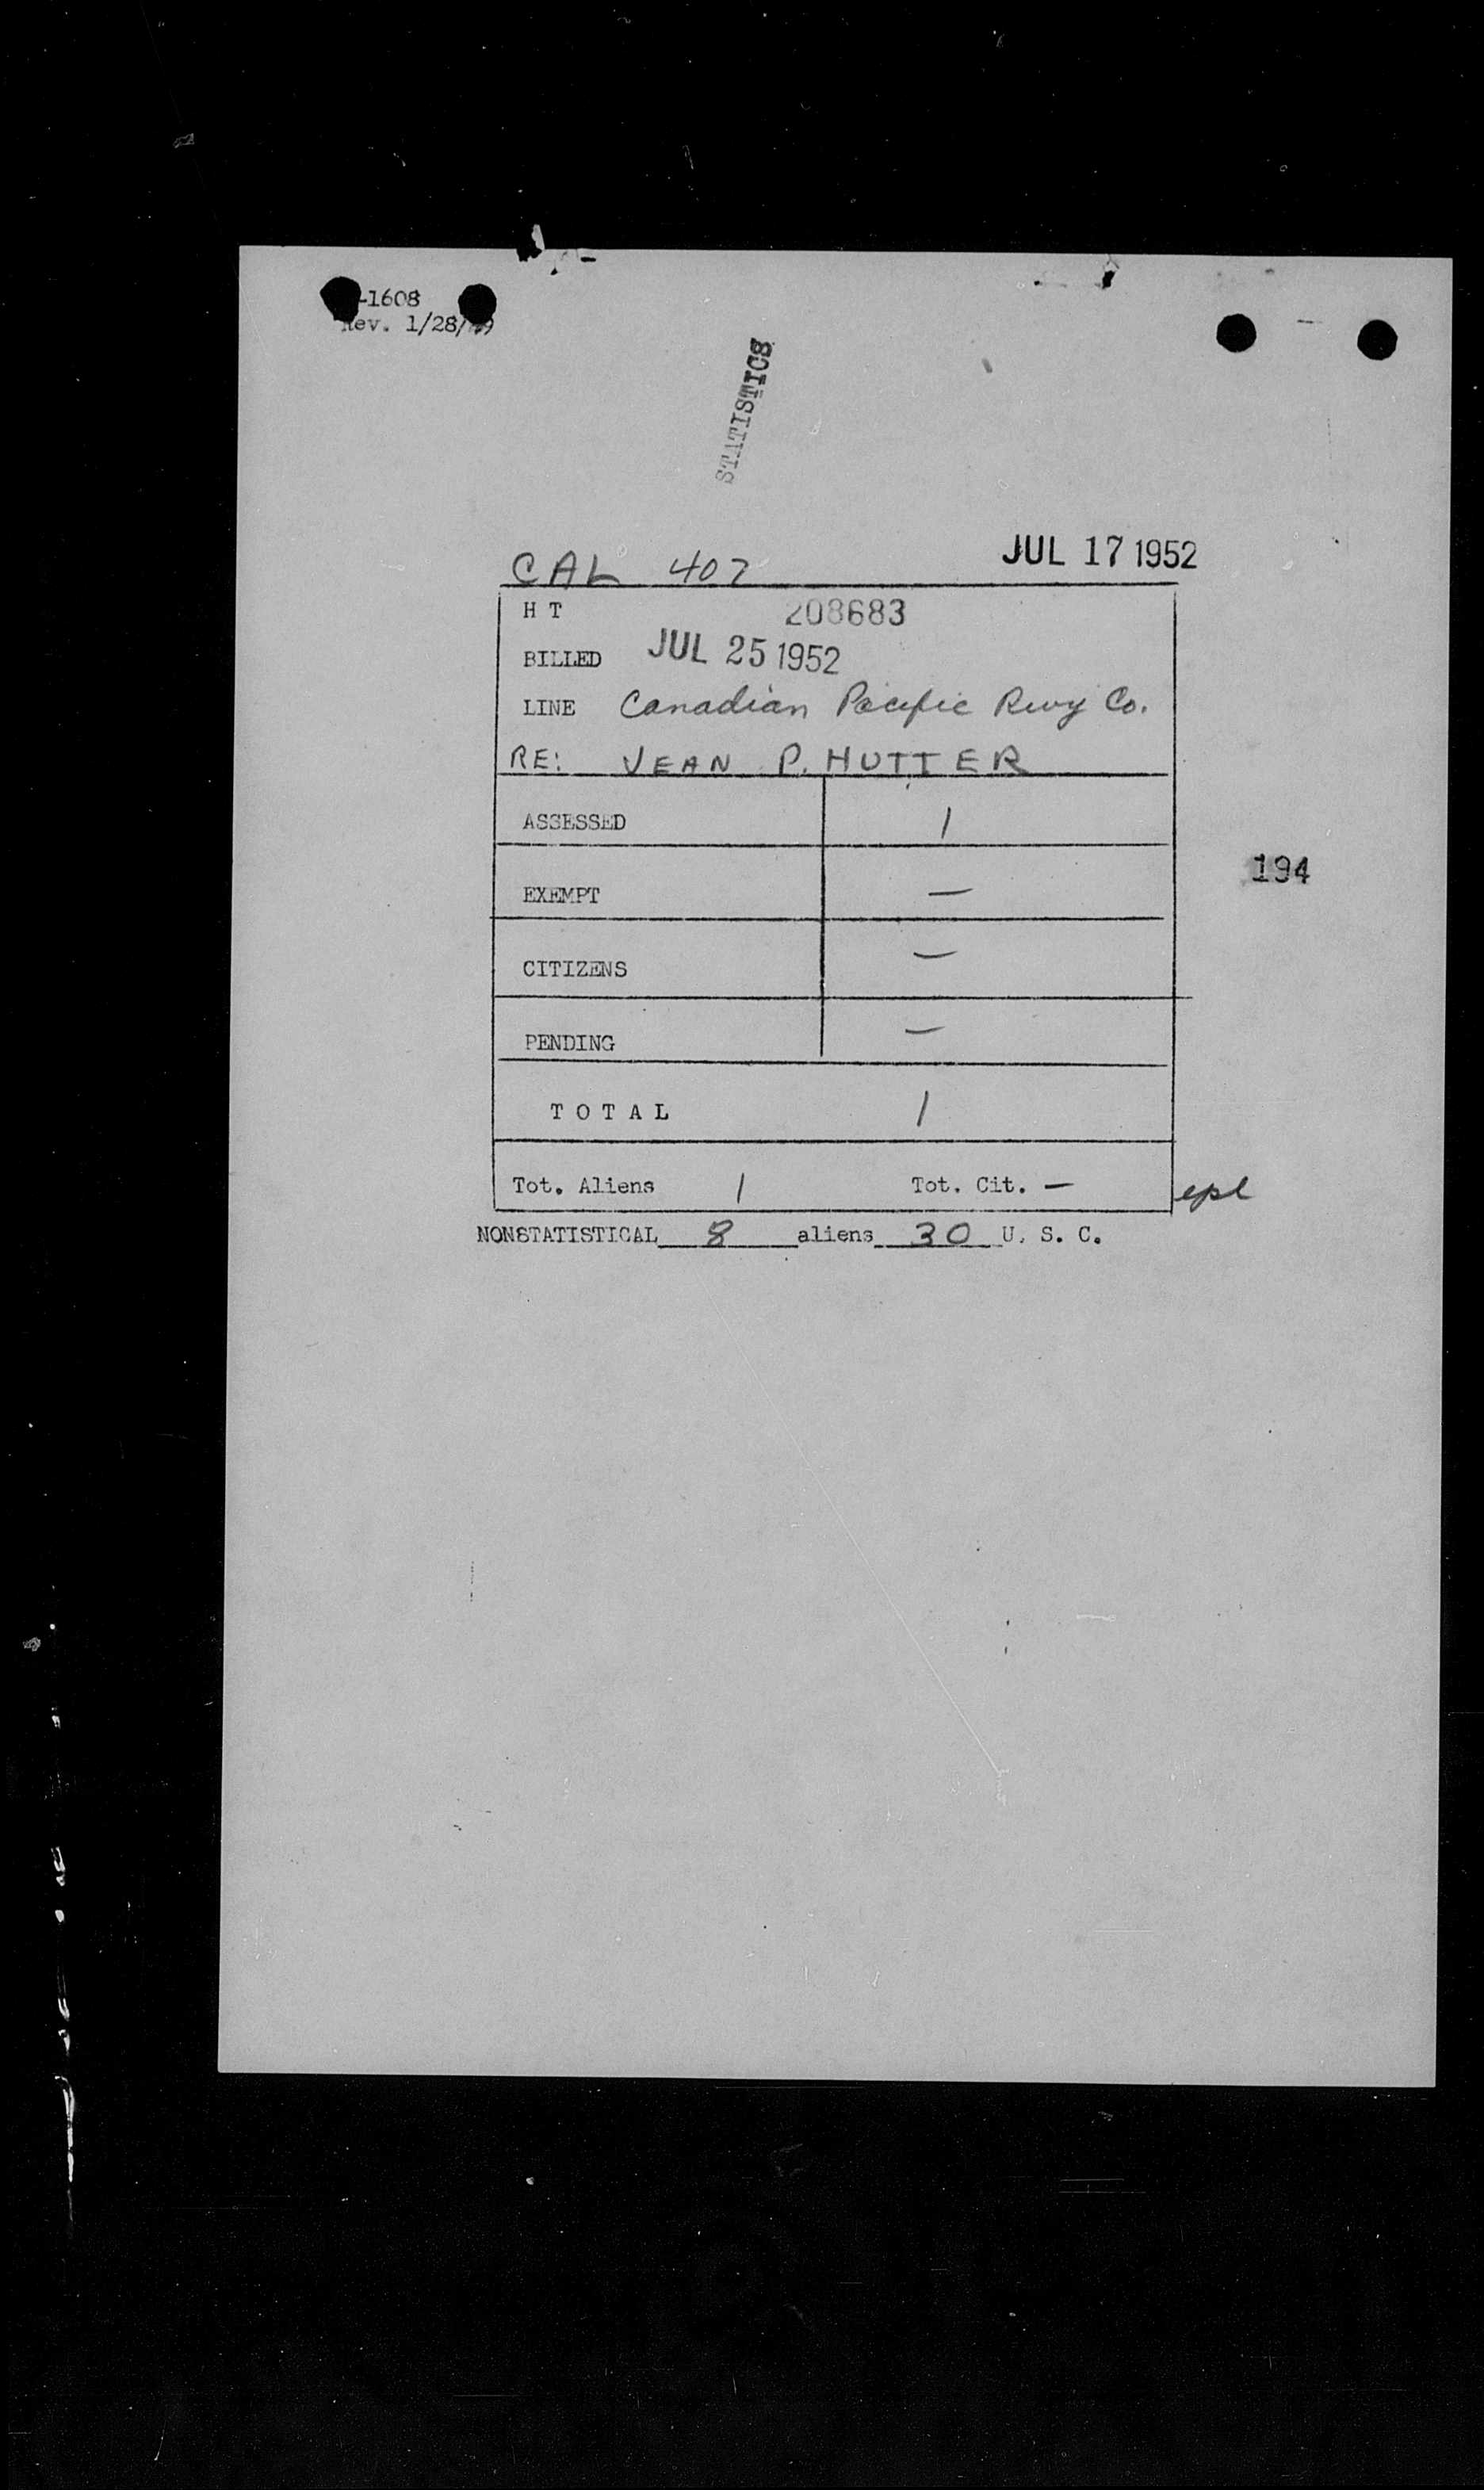 -1608
Rev. 1/28/49
STATISTICS
JUL 17 1952
CAL 407
H T 208683
BILLED JUL 25 1952
LINE Canadian Pacific Rwy Co.
RE: JEAN P. HUTTER
ASSESSED 1
EXEMPT —
194
CITIZENS —
PENDING —
TOTAL 1
Tot. Aliens 1 Tot. Cit. — epl
NONSTATISTICAL 8 aliens 30 U. S. C.